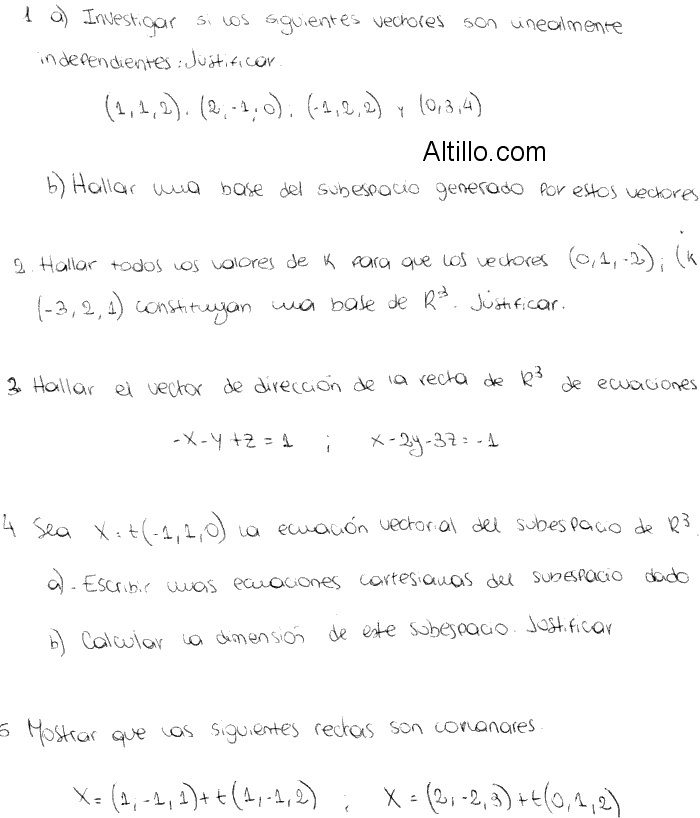 1 a) Investigar si los siguientes vectores son linealmente
independientes. Justificar.
(1,1,2), (2,-1,0), (-1,2,2) y (0,3,4)
Altillo.com
b) Hallar una base del subespacio generado por estos vectores
2. Hallar todos los valores de K para que los vectores (0,1,-2); (K
(-3,2,1) constituyan una base de R³. Justificar.
3 Hallar el vector de dirección de la recta de R³ de ecuaciones
-x-y+z=1 ; x-2y-3z=-1
4 Sea X=t(-1,1,0) la ecuación vectorial del subespacio de R³.
a)- Escribir unas ecuaciones cartesianas del subespacio dado
b) Calcular la dimensión de este subespacio. Justificar
5 Mostrar que las siguientes rectas son coplanares.
X=(1,-1,1)+t(1,-1,2) ; X=(2,-2,3)+t(0,1,2)